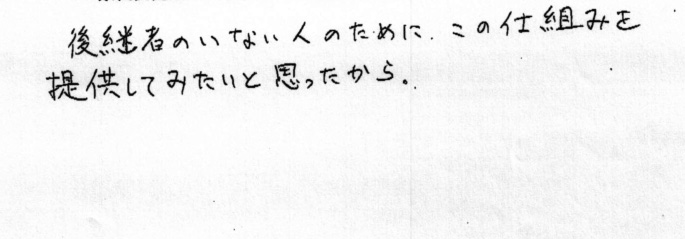 後継者のいない人のために、この仕組みを
提供してみたいと思ったから。